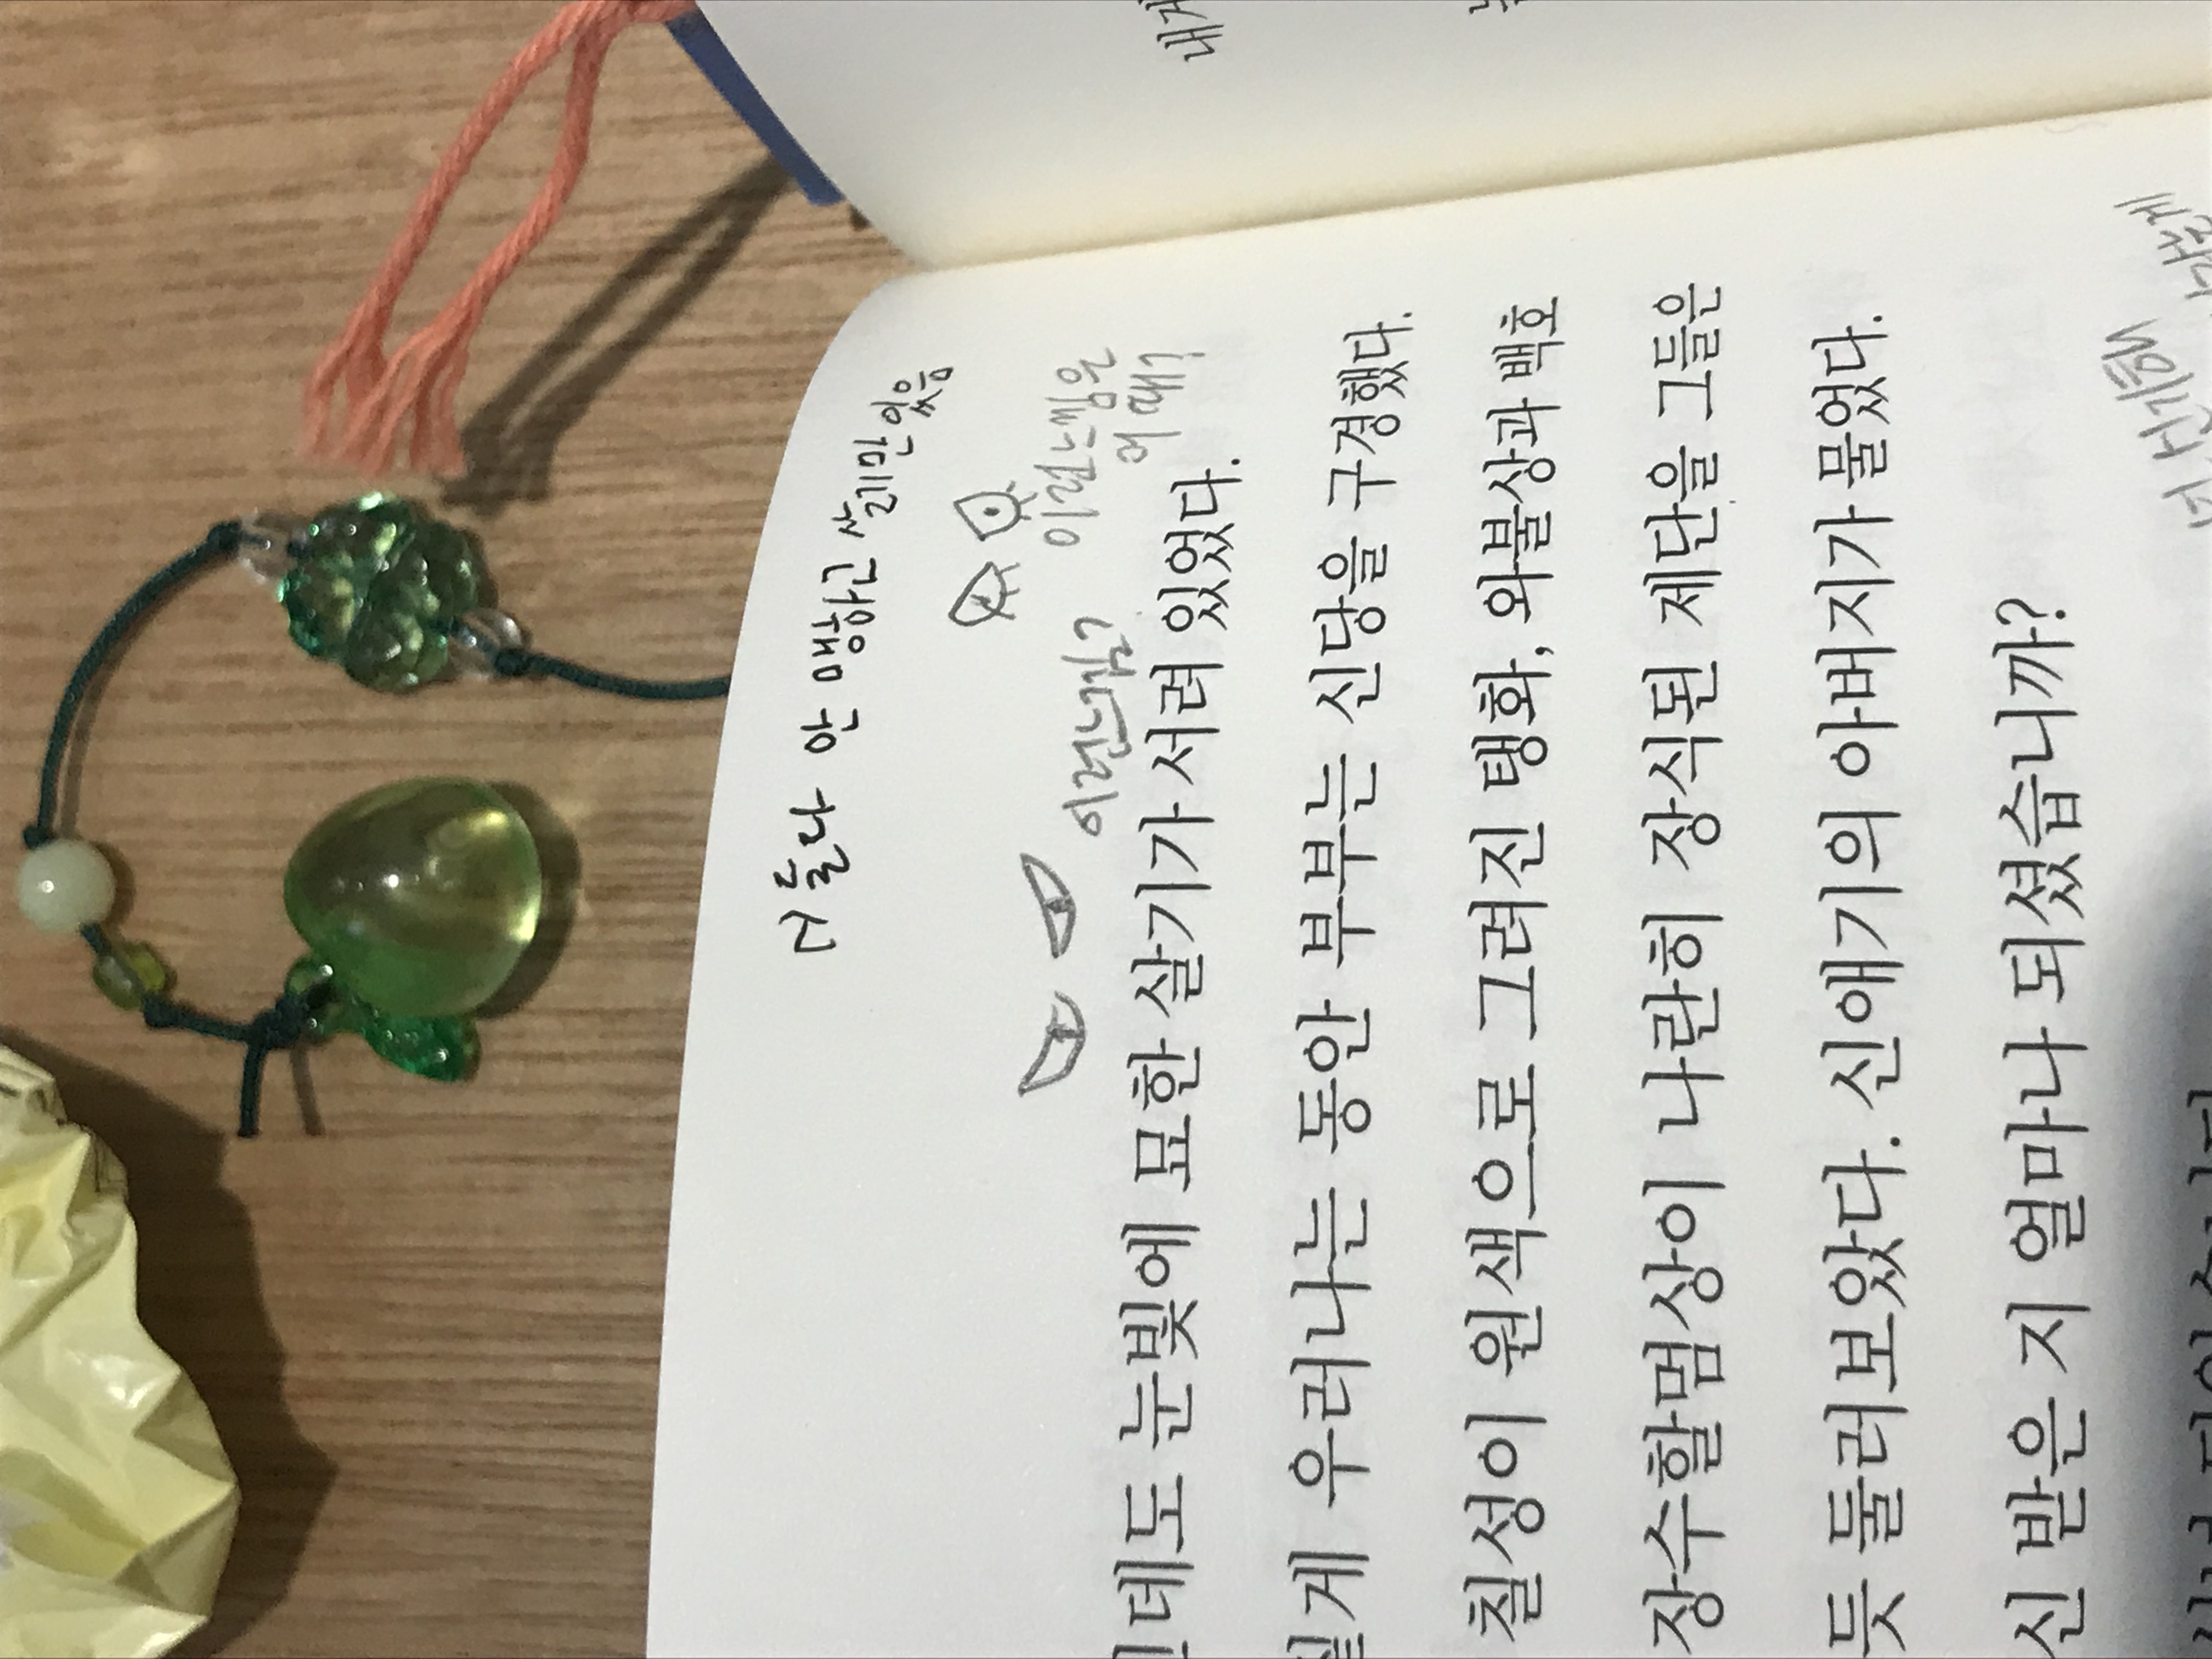 내게
ㄱ 둘다 안 맹하고 살기만 있음
이런느낌?
이런느낌은
어때?
데도 눈빛에 묘한 살기가 서려 있었다.
게 우러나는 동안 부부는 신당을 구경했다.
칠성이 원색으로 그려진 탱화, 와불상과 백호
장수할멈상이 나란히 장식된 제단을 그들은
듯 둘러보았다. 신애기의 아버지가 물었다.
신 받은 지 얼마나 되셨습니까?